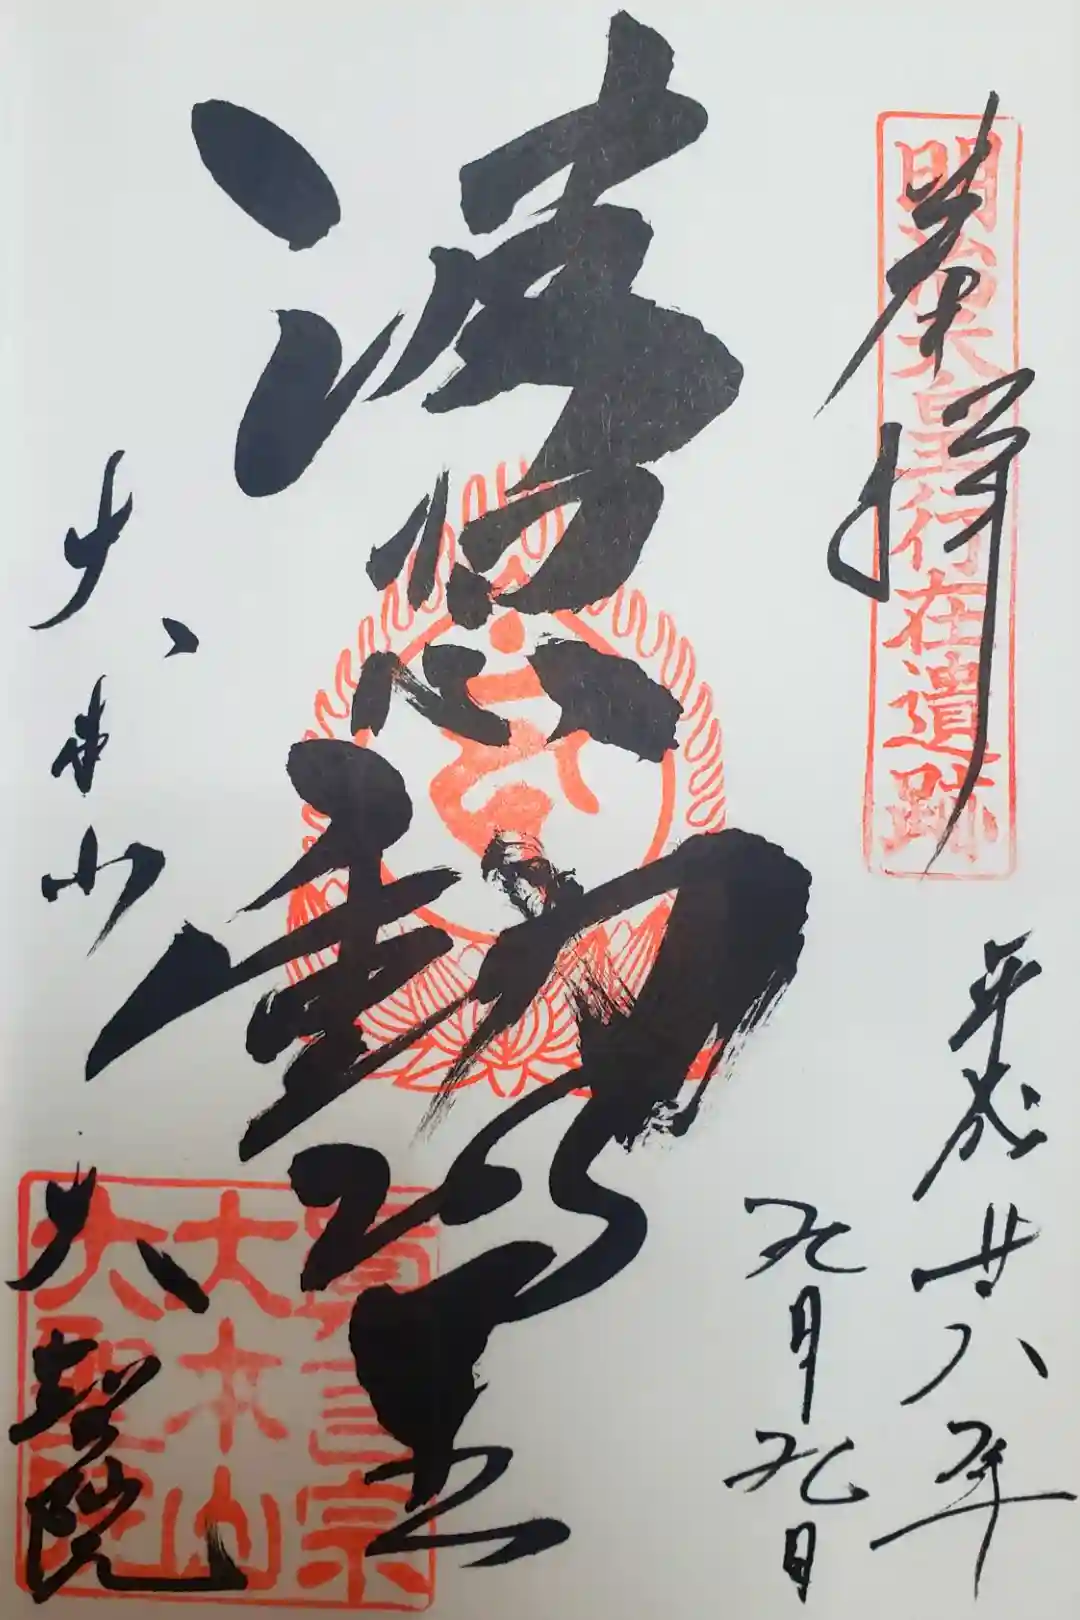 奉拝
明治天皇行在遺跡
平成廿八年
九月九日
波切不動明王
大本山
大聖院
真言宗
大本山
大聖院